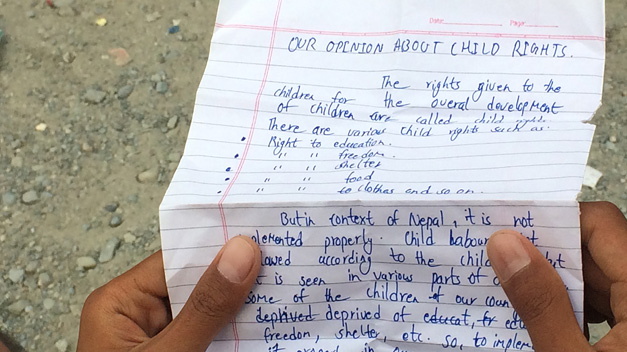 Date: Page:
OUR OPINION ABOUT CHILD RIGHTS.
The rights given to the
children for the overal development
of children are called child
There are various child rights such as:
• Right to education.
• " " freedom.
• " " shelter
• " " food
• " " to clothes and so on.
But in context of Nepal, it is not
plemented properly. Child labour
lowed according to the child
is seen in various parts of
some of the children of our coun
deprived deprived of educat, fr edu
freedom, shelter, etc. so, to implem
it in